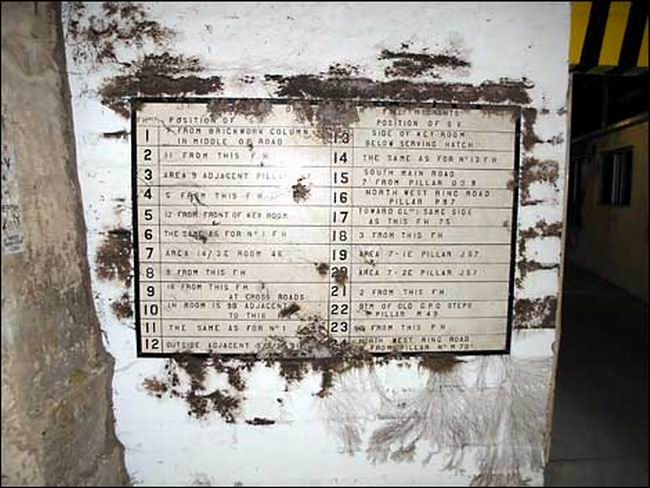 POSITION OF S.V.
1 FROM BRICKWORK COLUMN
IN MIDDLE OF ROAD
2 11 FROM THIS F H
3 AREA 9 ADJACENT
4 5 FROM THIS F H
5 12 FROM FRONT OF KEY ROOM
6 THE SAME AS FOR Nº 1 F H
7 AREA 14/3E ROOM
8 FROM THIS F H
9 FROM THIS F H
AT CROSS ROADS
10 IN ROOM IS 9B ADJACENT
TO THIS
11 THE SAME AS FOR Nº 1
12 OUTSIDE ADJACENT
HYDRANTS
POSITION OF S V
13 SIDE OF KEY ROOM
BELOW SERVING HATCH
14 THE SAME AS FOR Nº 13 F H
15 SOUTH MAIN ROAD
7 FROM PILLAR
16 NORTH WEST RING ROAD
PILLAR P 97
17 TOWARD SAME SIDE
AS THIS FH
18 3 FROM THIS F H
19 AREA 7-1E PILLAR J57
20 AREA 7-2E PILLAR J57
21 2 FROM THIS F H
22 BTM OF OLD G.P.O STEPS
PILLAR M 49
23 FROM THIS F H
NORTH WEST RING ROAD
FROM PILLAR